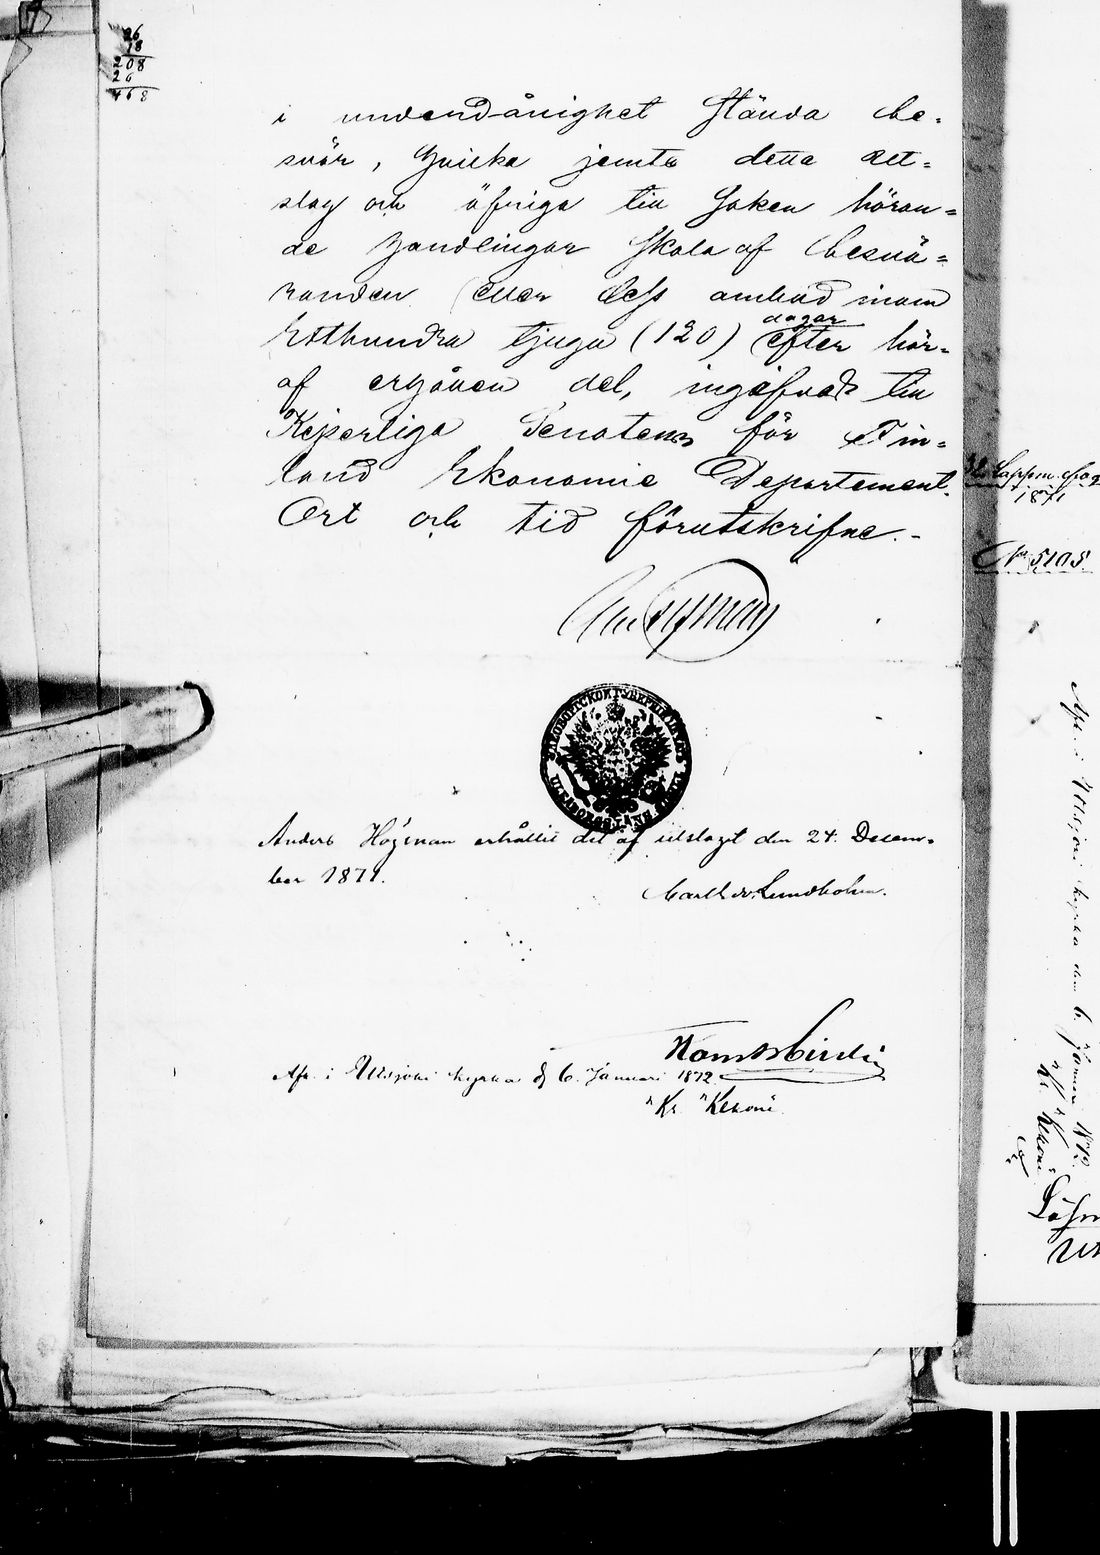 26
18
208
26
468
i underdånighet stända be-
svär, hvilka jemte detta ut-
slag och öfriga till saken höran-
de handlingar skola af besvä-
randen eller dess ombud inom
Etthundra tjugu (120) dagar efter här-
af erhållen del, ingifvas till
Kejserliga Senatens för Fin-
land Ekonomie Departement.
Ort och tid förutskrifne.-
УЛЕАБОРГСКОЙ ГУБЕРНІИ
ULEÅBORGS LÄNS
Anders Högman erhållit del af utslaget den 24. Decem-
ber 1871.
Lundholm.
Afs. i Utsjoki kyrka d. 6. Januari 1872.
Lappm. Fog
1871
No 5105.
Afs. i Utsjoki kyrka den 6. Januari 1872.